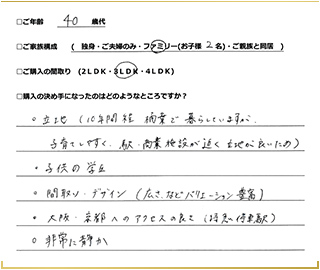 □ご年齢 40 歳代
□ご家族構成 ( 独身・ご夫婦のみ・ファミリー(お子様 2 名)・ご親族と同居 )
□ご購入の間取り (2LDK・3LDK・4LDK)
□購入の決め手になったのはどのようなところですか?
○ 立地 (10年間程 楠葉で暮らしていますが、
子育てしやすく、駅・商業施設が近く立地が良いため)
○ 子供の学区
○ 間取り・デザイン (広さなどバリエーション豊富)
○ 大阪・京都へのアクセスの良さ (特急停車駅)
○ 非常に静か